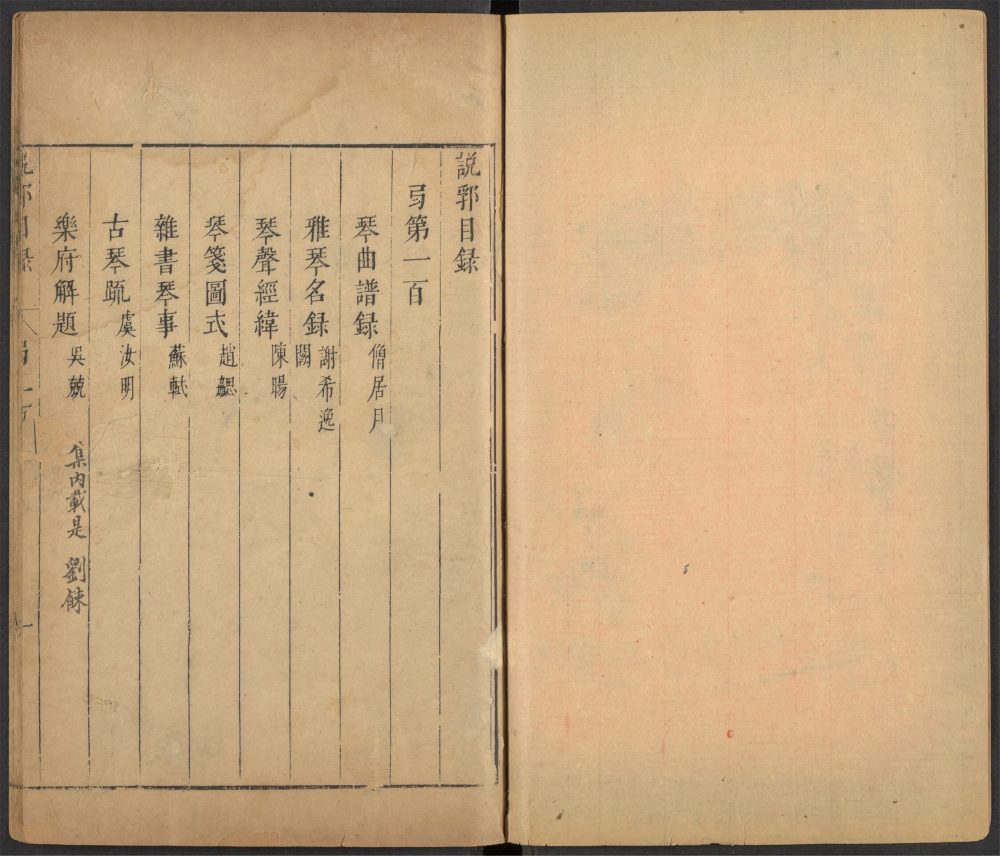 說郛目録
弓第一百
琴曲譜録 僧居月
雅琴名録 謝希逸
琴聲經緯 陳暘 闕
琴箋圖式 趙勰
雜書琴事 蘇軾
古琴疏 虞汝明
樂府解題 吳兢 集内載是 劉餗
説郛目録 弓一百 一